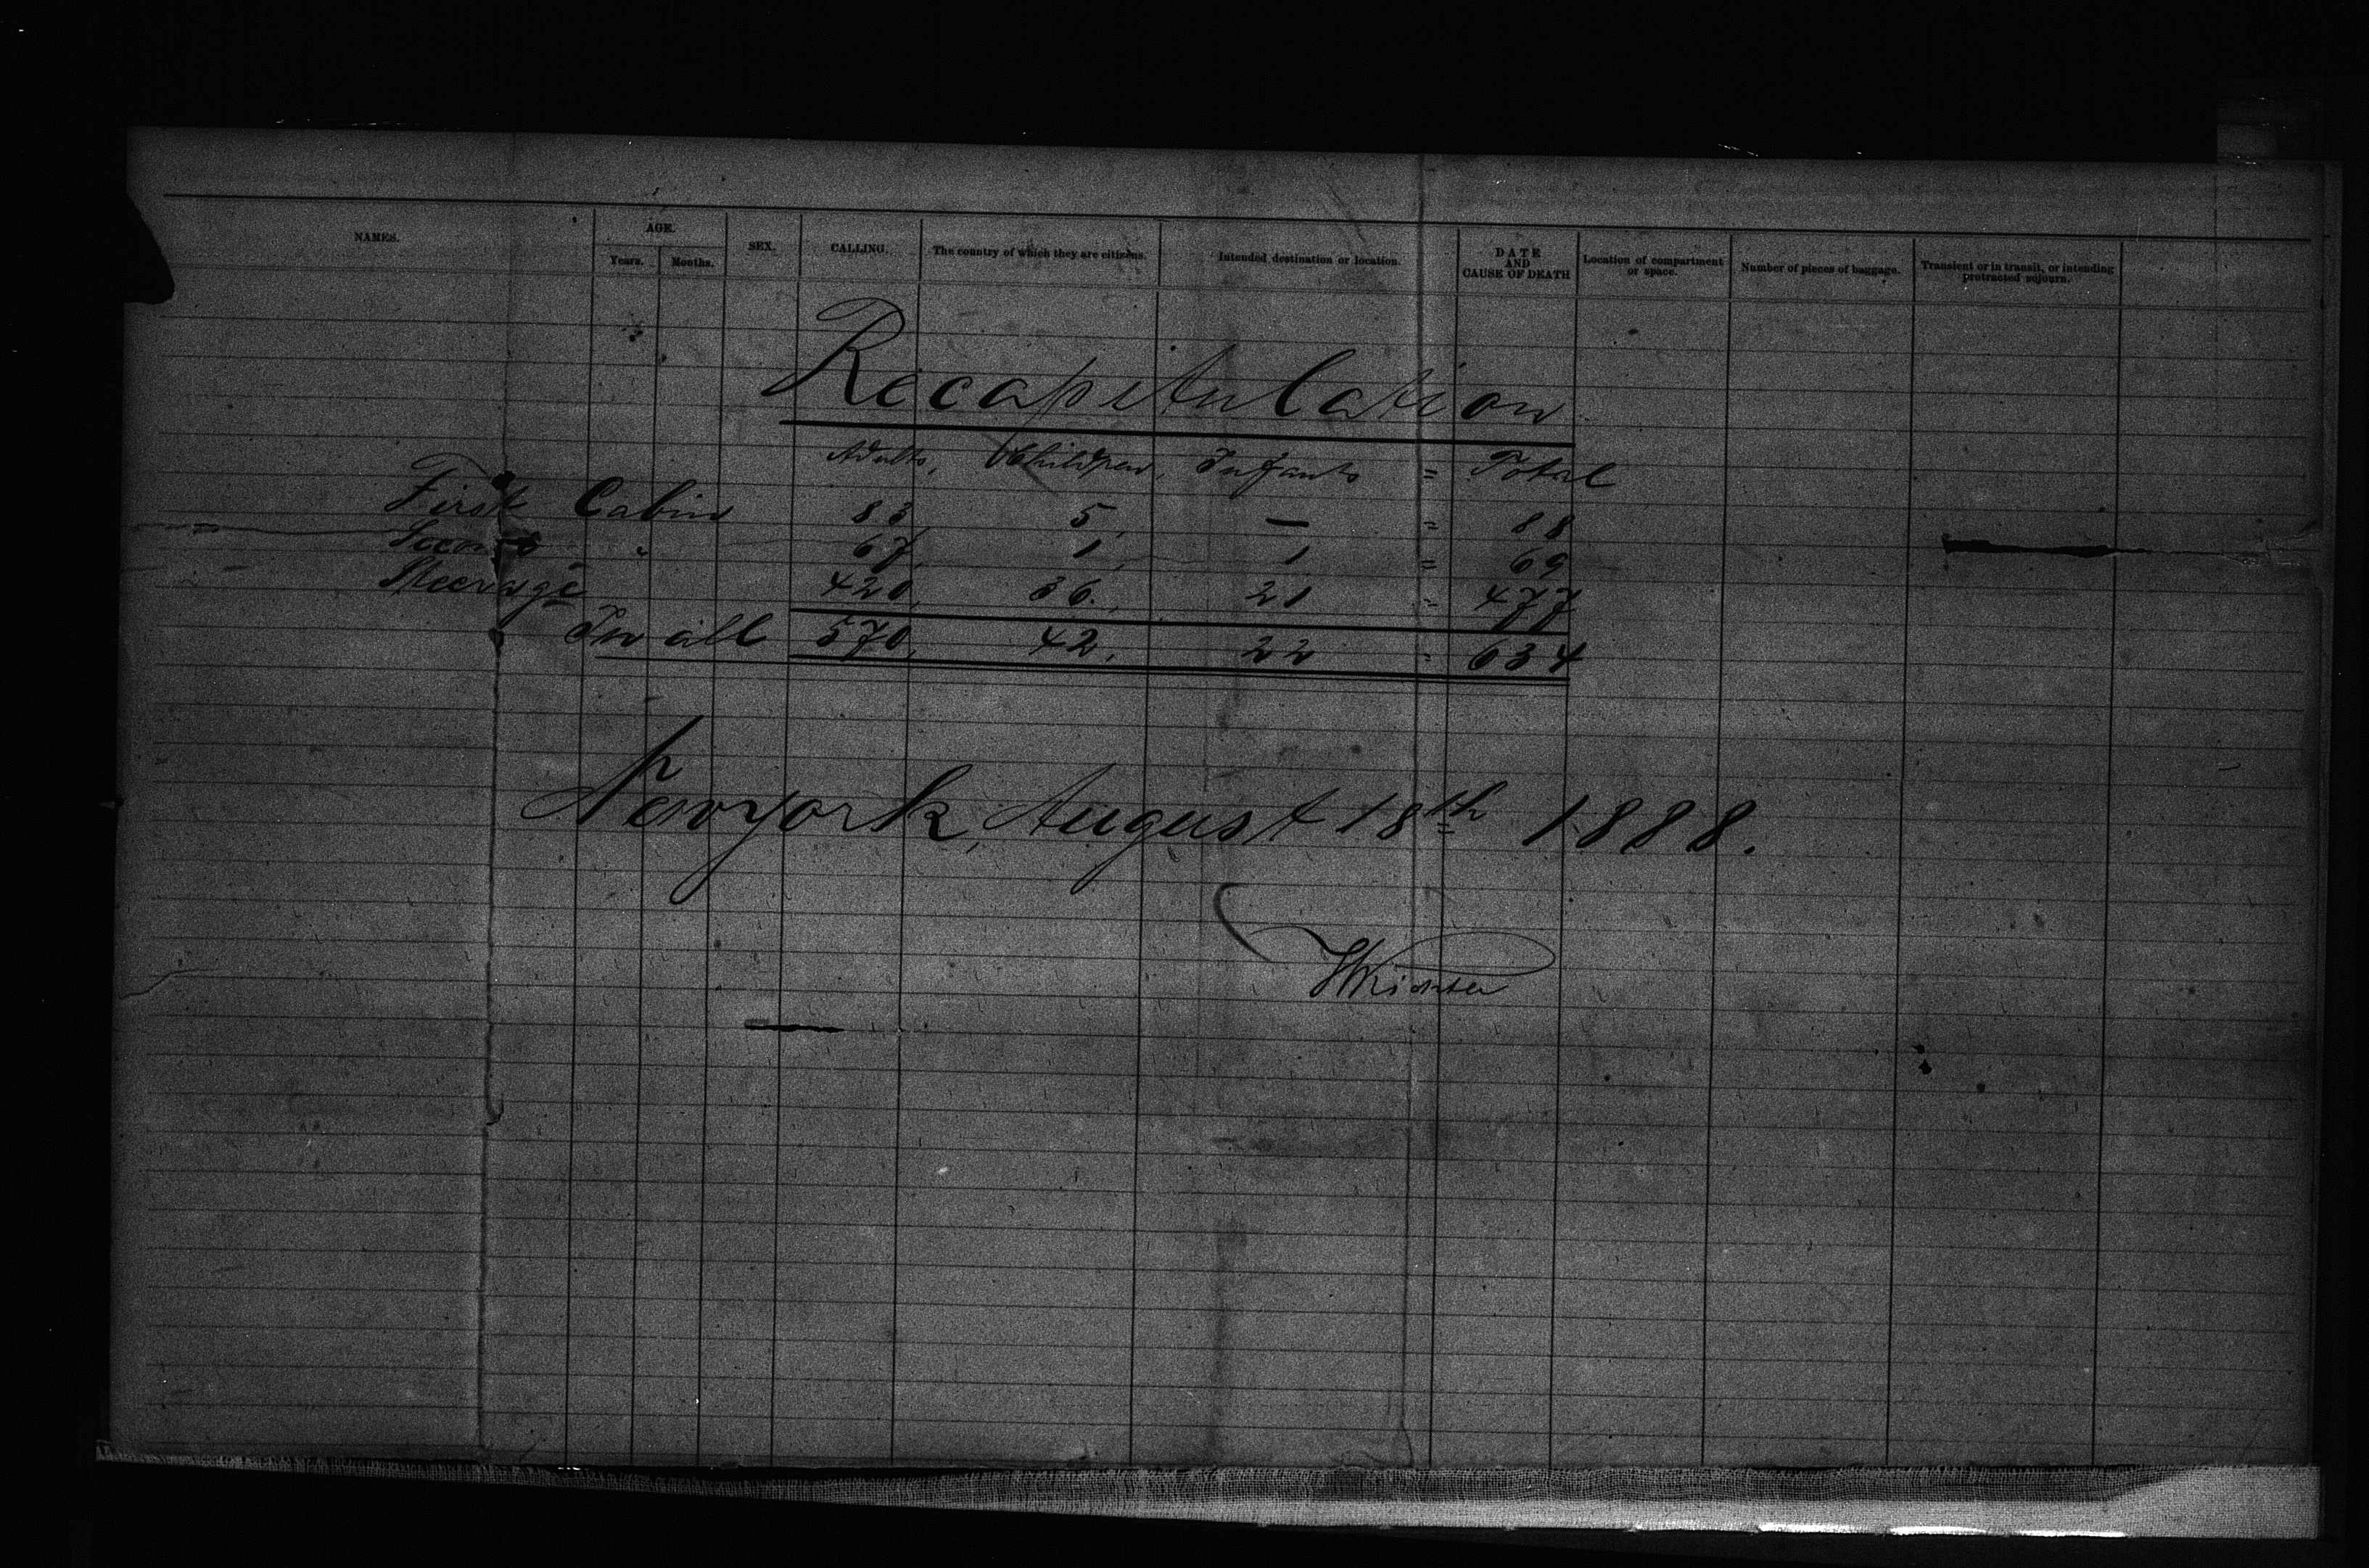 NAMES. AGE. SEX. CALLING. The country of which they are citizens. Intended destination or location. DATE AND CAUSE OF DEATH Location of compartment or space. Number of pieces of baggage. Transient or in transit, or intending protracted sojourn.
Years. Months.
Recapitulation
Adults, Children, Infants = Total
First Cabin 83, 5, — = 88
Second " 67, 1, 1 = 69
Steerage 420, 36, 21 = 477
In all 570, 42, 22 = 634
Newyork, August 18th 1888.